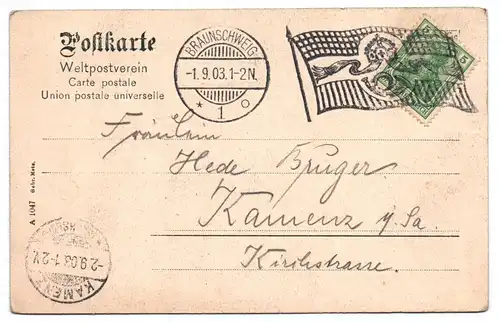 Postkarte
Weltpostverein
Carte postale
Union postale universelle
BRAUNSCHWEIG
-1.9.03.1-2N.
* 1 o
5
Fräulein
Hede Brüger
Kamenz i/Sa.
Kirchstrasse.
A 1047 Gebr. Metz.
KAMENZ
-2.9.03.1-2V.